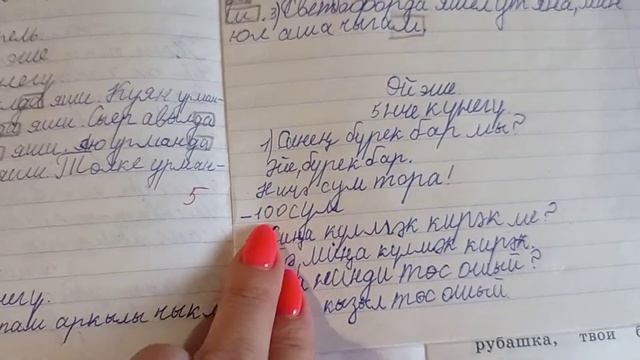 ш. 3) Светафорда яшел ут яна, мин
юл аша чыгам.
Өй эше
5нче күнегү
1) Синең бүрек бар мы?
Әйе, бүрек бар.
Ничә сум тора!
– 100 сум
күлмәк кирәк ме?
миңа күлмәк кирәк.
нинди төс ошый?
кызыл төс ошый.
эше
яши. Куян урман-
яши. Сыер авылда
яши. Аю урманда
Төлке урман-
5
аркылы чыкм
рубашка, твои б